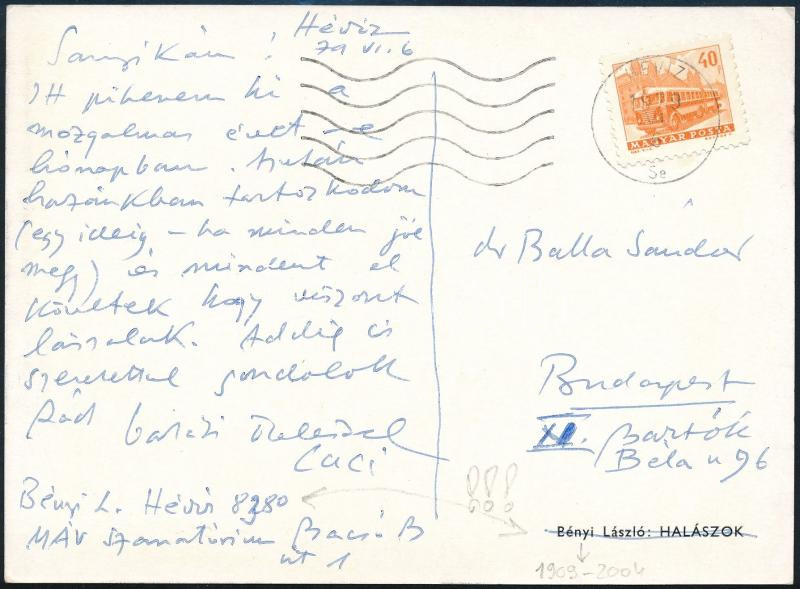 Hévíz
79 VI. 6
Sanyikám!
Itt pihenem ki a
mozgalmas évet
hónapban. Aztán
hazánkban tartózkodom
(egy ideig – ha minden jól
megy) és mindent el
követek hogy viszont
lássalak. Addig is
szeretettel gondolok
Rád baráti öleléssel
Laci
Bényi L. Hévíz 8380
MÁV Szanatórium
út 1
40
MAGYAR POSTA
HÉVÍZ
dr Balla Sándor
Budapest
XI. Bartók
Béla u 96
Bényi László: HALÁSZOK
1909–2004